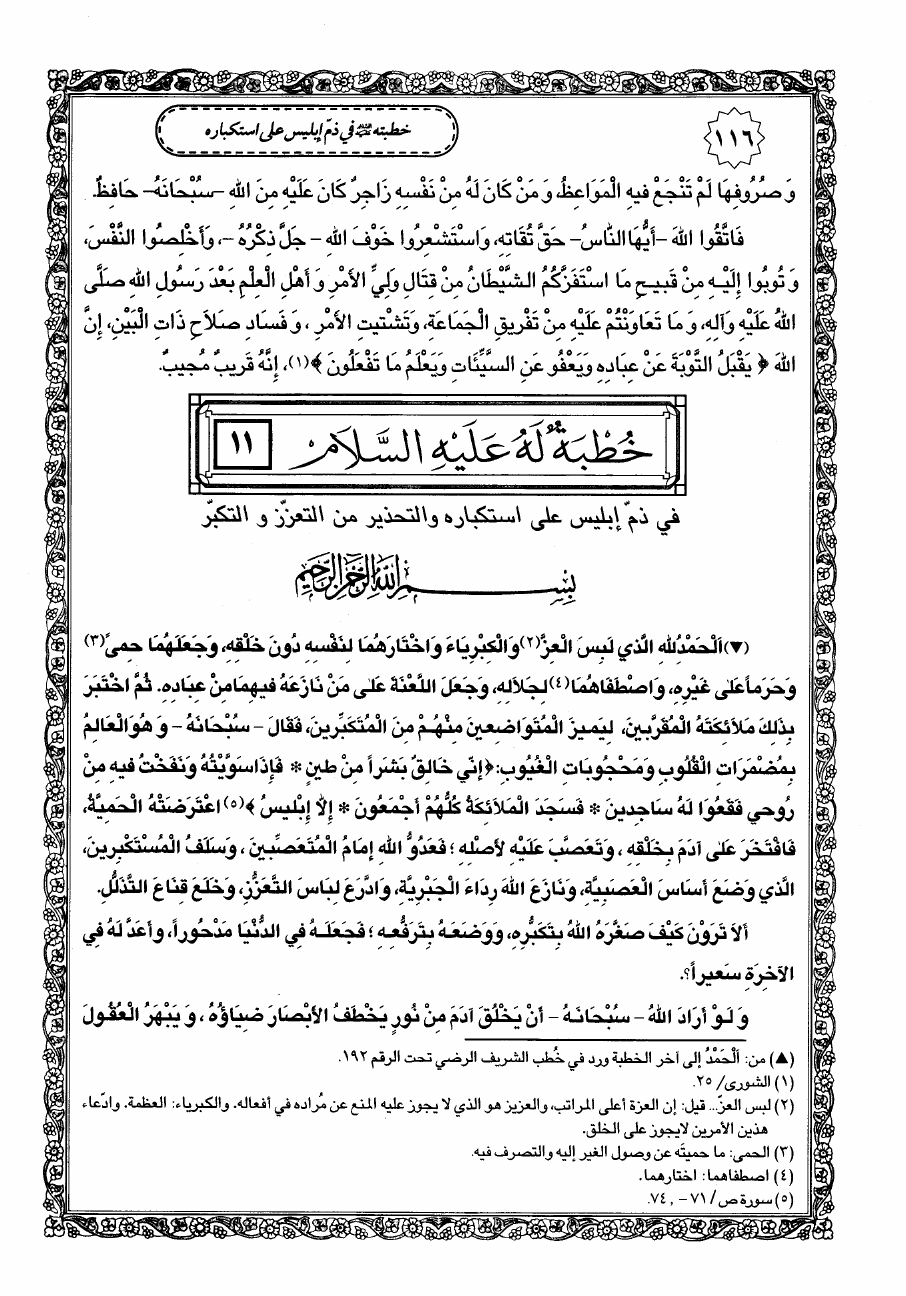 خطبته ﷺ في ذمّ إبليس على استكباره
١١٦
وَ صُرُوفِهَا لَمْ تَنْجَعْ فِيهِ الْمَوَاعِظُ، وَ مَنْ كَانَ لَهُ مِنْ نَفْسِهِ زَاجِرٌ كَانَ عَلَيْهِ مِنَ اللهِ -سُبْحَانَهُ- حَافِظٌ.
فَاتَّقُوا اللهَ -أَيُّهَا النَّاسُ- حَقَّ تُقَاتِهِ، وَاسْتَشْعِرُوا خَوْفَ اللهِ - جَلَّ ذِكْرُهُ -، وَأَخْلِصُوا النَّفْسَ،
وَ تُوبُوا إِلَيْهِ مِنْ قَبِيحِ مَا اسْتَفَزَّكُمُ الشَّيْطَانُ مِنْ قِتَالِ وَلِيِّ الأَمْرِ وَ أَهْلِ الْعِلْمِ بَعْدَ رَسُولِ اللهِ صَلَّى
اللهُ عَلَيْهِ وَآلِهِ، وَ مَا تَعَاوَنْتُمْ عَلَيْهِ مِنْ تَفْرِيقِ الْجَمَاعَةِ، وَتَشْتِيتِ الأَمْرِ، وَ فَسَادِ صَلَاحِ ذَاتِ الْبَيْنِ، إِنَّ
اللهَ ﴿ يَقْبَلُ التَّوْبَةَ عَنْ عِبَادِهِ وَيَعْفُو عَنِ السَّيِّئَاتِ وَيَعْلَمُ مَا تَفْعَلُونَ ﴾(١)، إِنَّهُ قَرِيبٌ مُجِيبٌ.
خُطْبَةٌ لَهُ عَلَيْهِ السَّلَامِ ١١
في ذمّ إبليس على استكباره والتحذير من التعزّز و التكبّر
بِسْمِ اللهِ الرَّحْمٰنِ الرَّحِيمِ
(▼)اَلْحَمْدُ لِلهِ الَّذِي لَبِسَ الْعِزَّ(٢)وَالْكِبْرِيَاءَ وَ اخْتَارَهُمَا لِنَفْسِهِ دُونَ خَلْقِهِ، وَ جَعَلَهُمَا حِمىً(٣)
وَ حَرَماً عَلَى غَيْرِهِ، وَ اصْطَفَاهُمَا(٤)لِجَلَالِهِ، وَ جَعَلَ اللَّعْنَةَ عَلَى مَنْ نَازَعَهُ فِيهِمَا مِنْ عِبَادِهِ. ثُمَّ اخْتَبَرَ
بِذَلِكَ مَلَائِكَتَهُ الْمُقَرَّبِينَ، لِيَمِيزَ الْمُتَوَاضِعِينَ مِنْهُمْ مِنَ الْمُتَكَبِّرِينَ، فَقَالَ - سُبْحَانَهُ - وَ هُوَ الْعَالِمُ
بِمُضْمَرَاتِ الْقُلُوبِ وَ مَحْجُوبَاتِ الْغُيُوبِ: ﴿إِنِّي خَالِقٌ بَشَراً مِنْ طِينٍ * فَإِذَا سَوَّيْتُهُ وَنَفَخْتُ فِيهِ مِنْ
رُوحِي فَقَعُوا لَهُ سَاجِدِينَ * فَسَجَدَ الْمَلَائِكَةُ كُلُّهُمْ أَجْمَعُونَ * إِلَّا إِبْلِيسُ ﴾(٥) اعْتَرَضَتْهُ الْحَمِيَّةُ،
فَافْتَخَرَ عَلَى آدَمَ بِخَلْقِهِ، وَ تَعَصَّبَ عَلَيْهِ لأَصْلِهِ؛ فَعَدُوُّ اللهِ إِمَامُ الْمُتَعَصِّبِينَ، وَ سَلَفُ الْمُسْتَكْبِرِينَ،
الَّذِي وَضَعَ أَسَاسَ الْعَصَبِيَّةِ، وَنَازَعَ اللهَ رِدَاءَ الْجَبْرِيَّةِ، وَادَّرَعَ لِبَاسَ التَّعَزُّزِ، وَخَلَعَ قِنَاعَ التَّذَلُّلِ.
أَلَا تَرَوْنَ كَيْفَ صَغَّرَهُ اللهُ بِتَكَبُّرِهِ، وَوَضَعَهُ بِتَرَفُّعِهِ؛ فَجَعَلَهُ فِي الدُّنْيَا مَدْحُوراً، وَأَعَدَّ لَهُ فِي
الآخِرَةِ سَعِيراً؟.
وَ لَوْ أَرَادَ اللهُ - سُبْحَانَهُ - أَنْ يَخْلُقَ آدَمَ مِنْ نُورٍ يَخْطَفُ الأَبْصَارَ ضِيَاؤُهُ، وَ يَبْهَرُ الْعُقُولَ
(▲) من: اَلْحَمْدُ إلى آخر الخطبة ورد في خُطب الشريف الرضي تحت الرقم ١٩٢.
(١) الشورى/ ٢٥.
(٢) لبس العزّ... قيل: إن العزة أعلى المراتب، والعزيز هو الذي لا يجوز عليه المنع عن مُراده في أفعاله. والكبرياء: العظمة. وادّعاء
هذين الأمرين لايجوز على الخلق.
(٣) الحمى: ما حميتَه عن وصول الغير إليه والتصرف فيه.
(٤) اصطفاهما: اختارهما.
(٥) سورة ص/ ٧١ - ٧٤.